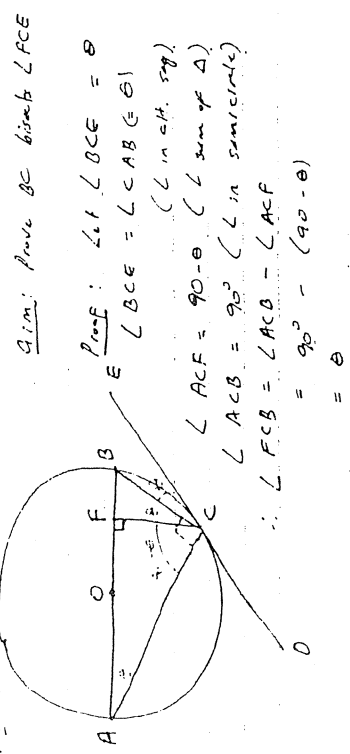 Aim: Prove BC bisects ∠FCE
Proof: Let ∠BCE = θ
∠BCE = ∠CAB (= θ)
(∠ in alt. seg)
∠ACF = 90 - θ (∠ sum of Δ)
∠ACB = 90° (∠ in semicircle)
∴ ∠FCB = ∠ACB - ∠ACF
= 90° - (90 - θ)
= θ
A
O
F
B
E
C
D